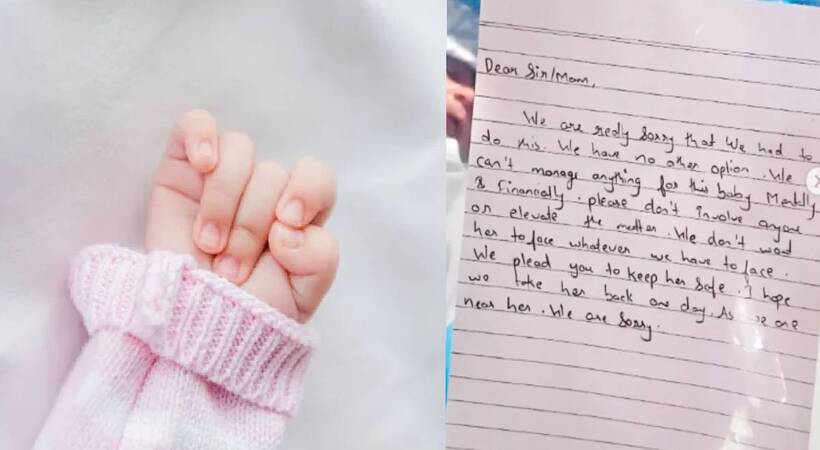 Dear Sir/Mam,
We are really Sorry that We had to
do this. We have no other option. We
can't manage anything for this baby Mentally
& Financially. please don't involve anyone
or elevate the matter. We don't want
her to face whatever we have to face.
We plead you to keep her safe. I hope
we take her back one day. As we are
near her. We are Sorry.